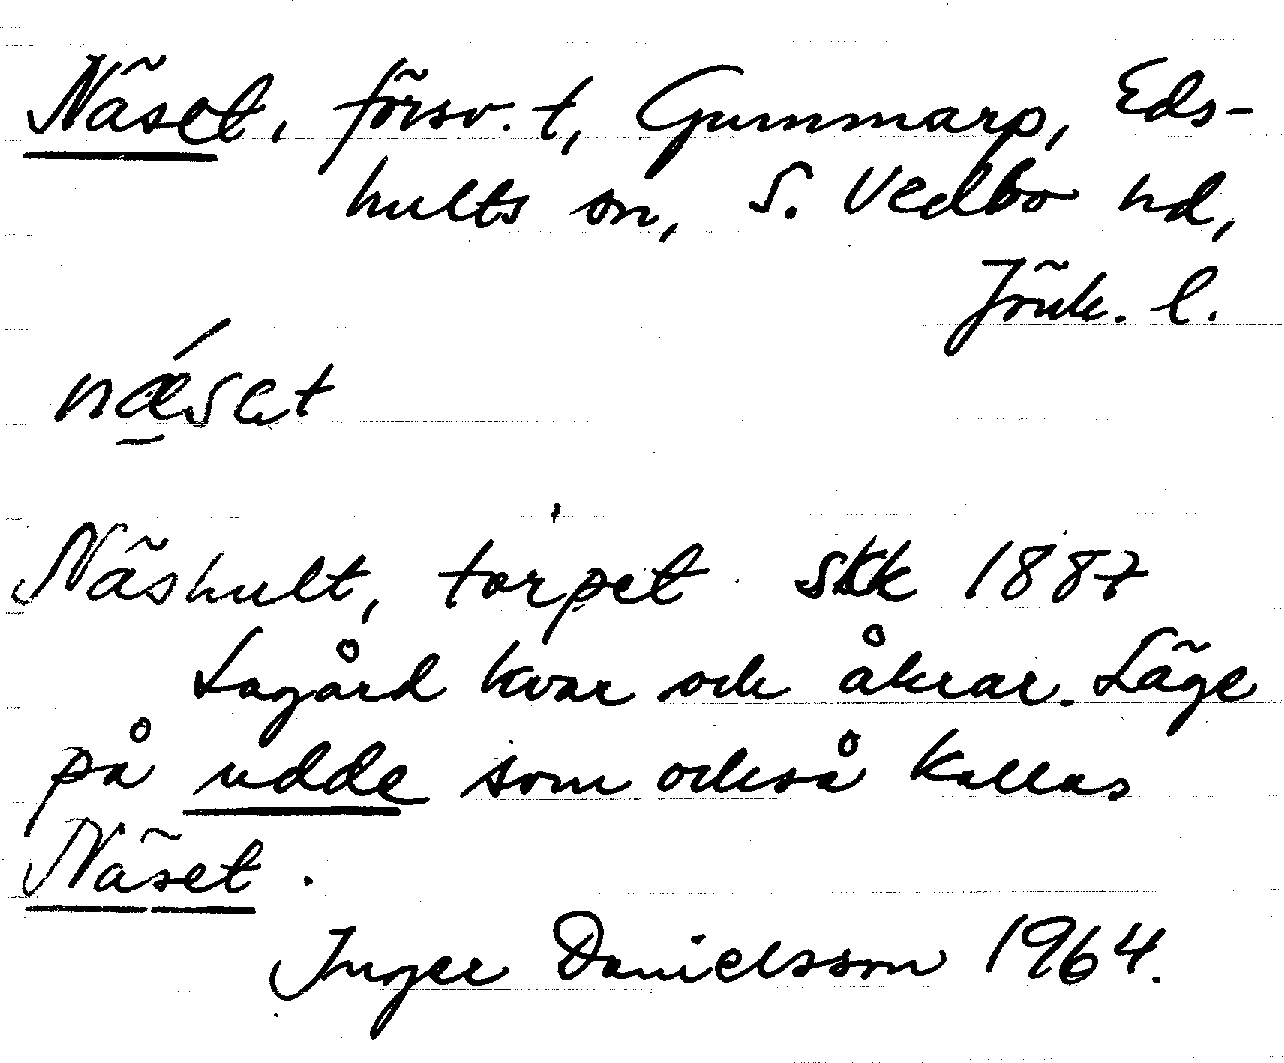 Näset, försv. t, Gummarp, Eds-
hults sn, S. Vedbo hd,
Jönk. l.
nǽ̱sat
Näshult, torpet skk 1887
Lagård kvar och åkrar. Läge
på udde som också kallas
Näset.
Inger Danielsson 1964.